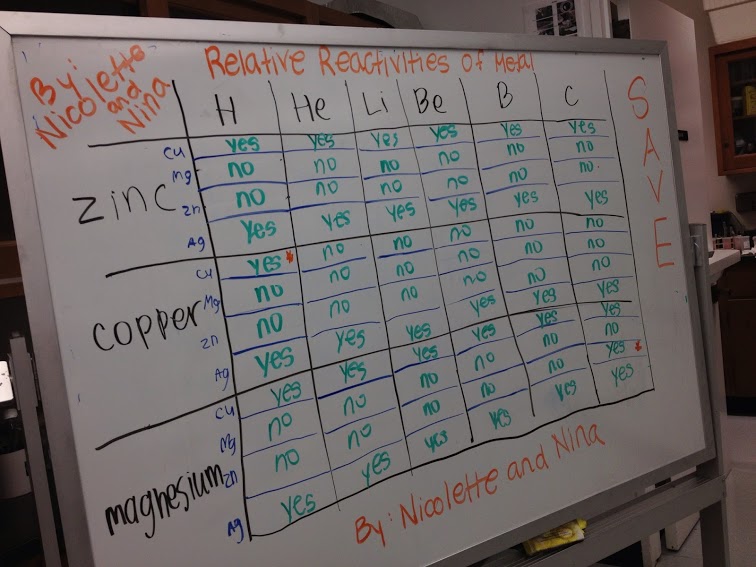 By:
Nicolette
and
Nina
Relative Reactivities of Metal
H He Li Be B C
zinc
Cu yes yes yes yes yes yes
Mg no no no no no no
Zn no no no no no no
Ag yes yes yes yes yes yes
copper
Cu yes* no no no no no
Mg no no no no no no
Zn no no no no no no
Ag yes yes yes yes yes yes
magnesium
Cu yes yes yes yes yes yes
Mg no no no no no no
Zn no no no no no yes*
Ag yes yes yes yes yes yes
SAVE
By: Nicolette and Nina